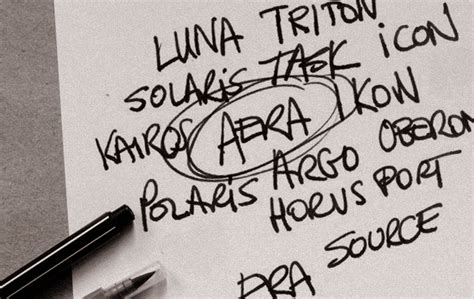 LUNA TRITON
SOLARIS TASK iCON
KAIROS AERA IKON
POLARIS ARGO OBERON
HORUS PORT
DRA SOURCE